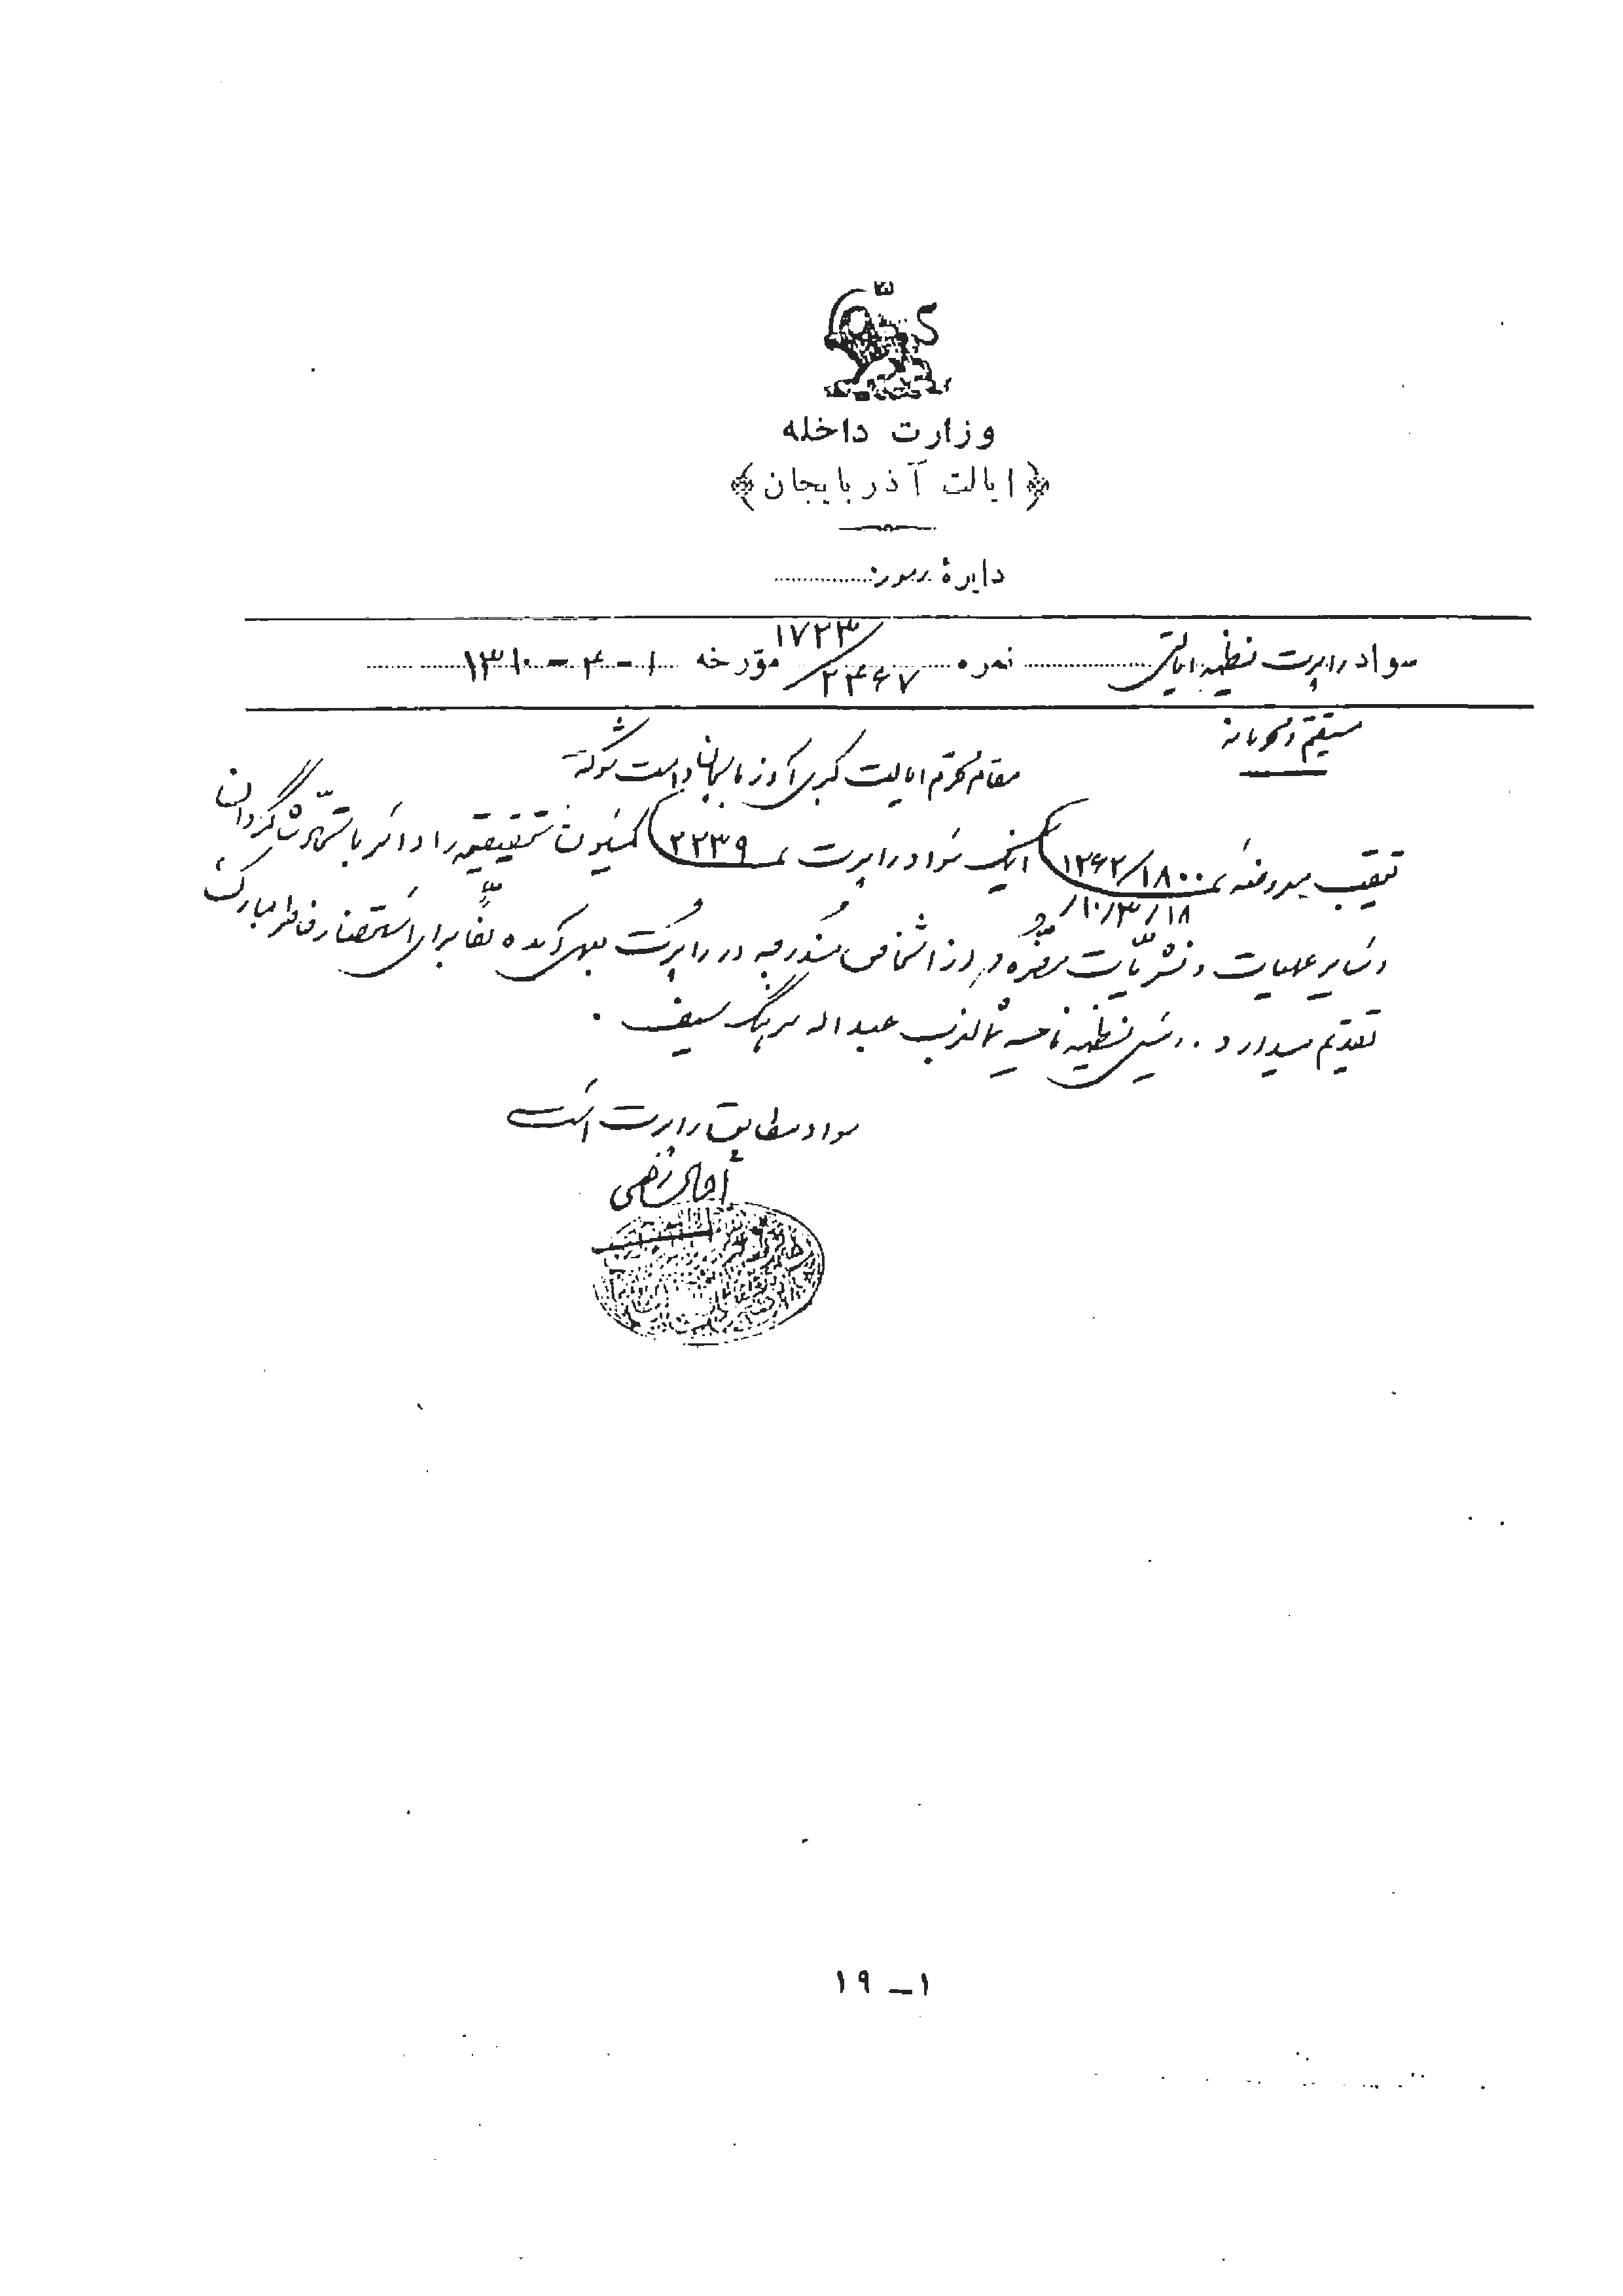 وزارت داخله
ایالت آذربایجان
دایرهٔ رموز
سواد راپرت نظمیه ایالتی نمره ۱۷۲۳/۲۴۶۷ مؤرخه ۱-۴-۱۳۱۰
مستقیم و محرمانه
مقام محترم ایالت کبری آذربایجان دامت شوکته
تعقیب معروضه نمره ۱۲۶۲/۱۸۰۰ اینک سواد راپرت نمره ۲۲۳۹ کمیسیون تفتیشیه را دائر باتهامات شاگردان
۱۸/۳/۱۰
و سایر عملیات و نشریات مضره از اشخاص مندرجه در راپرت بعمل آمده لفا برای استحضار خاطر مبارک
تقدیم میدارد. رئیس نظمیه ناحیه شمالغرب عبداله سرهنگ سیف.
سواد مطابق راپرت است
۱ـ ۱۹